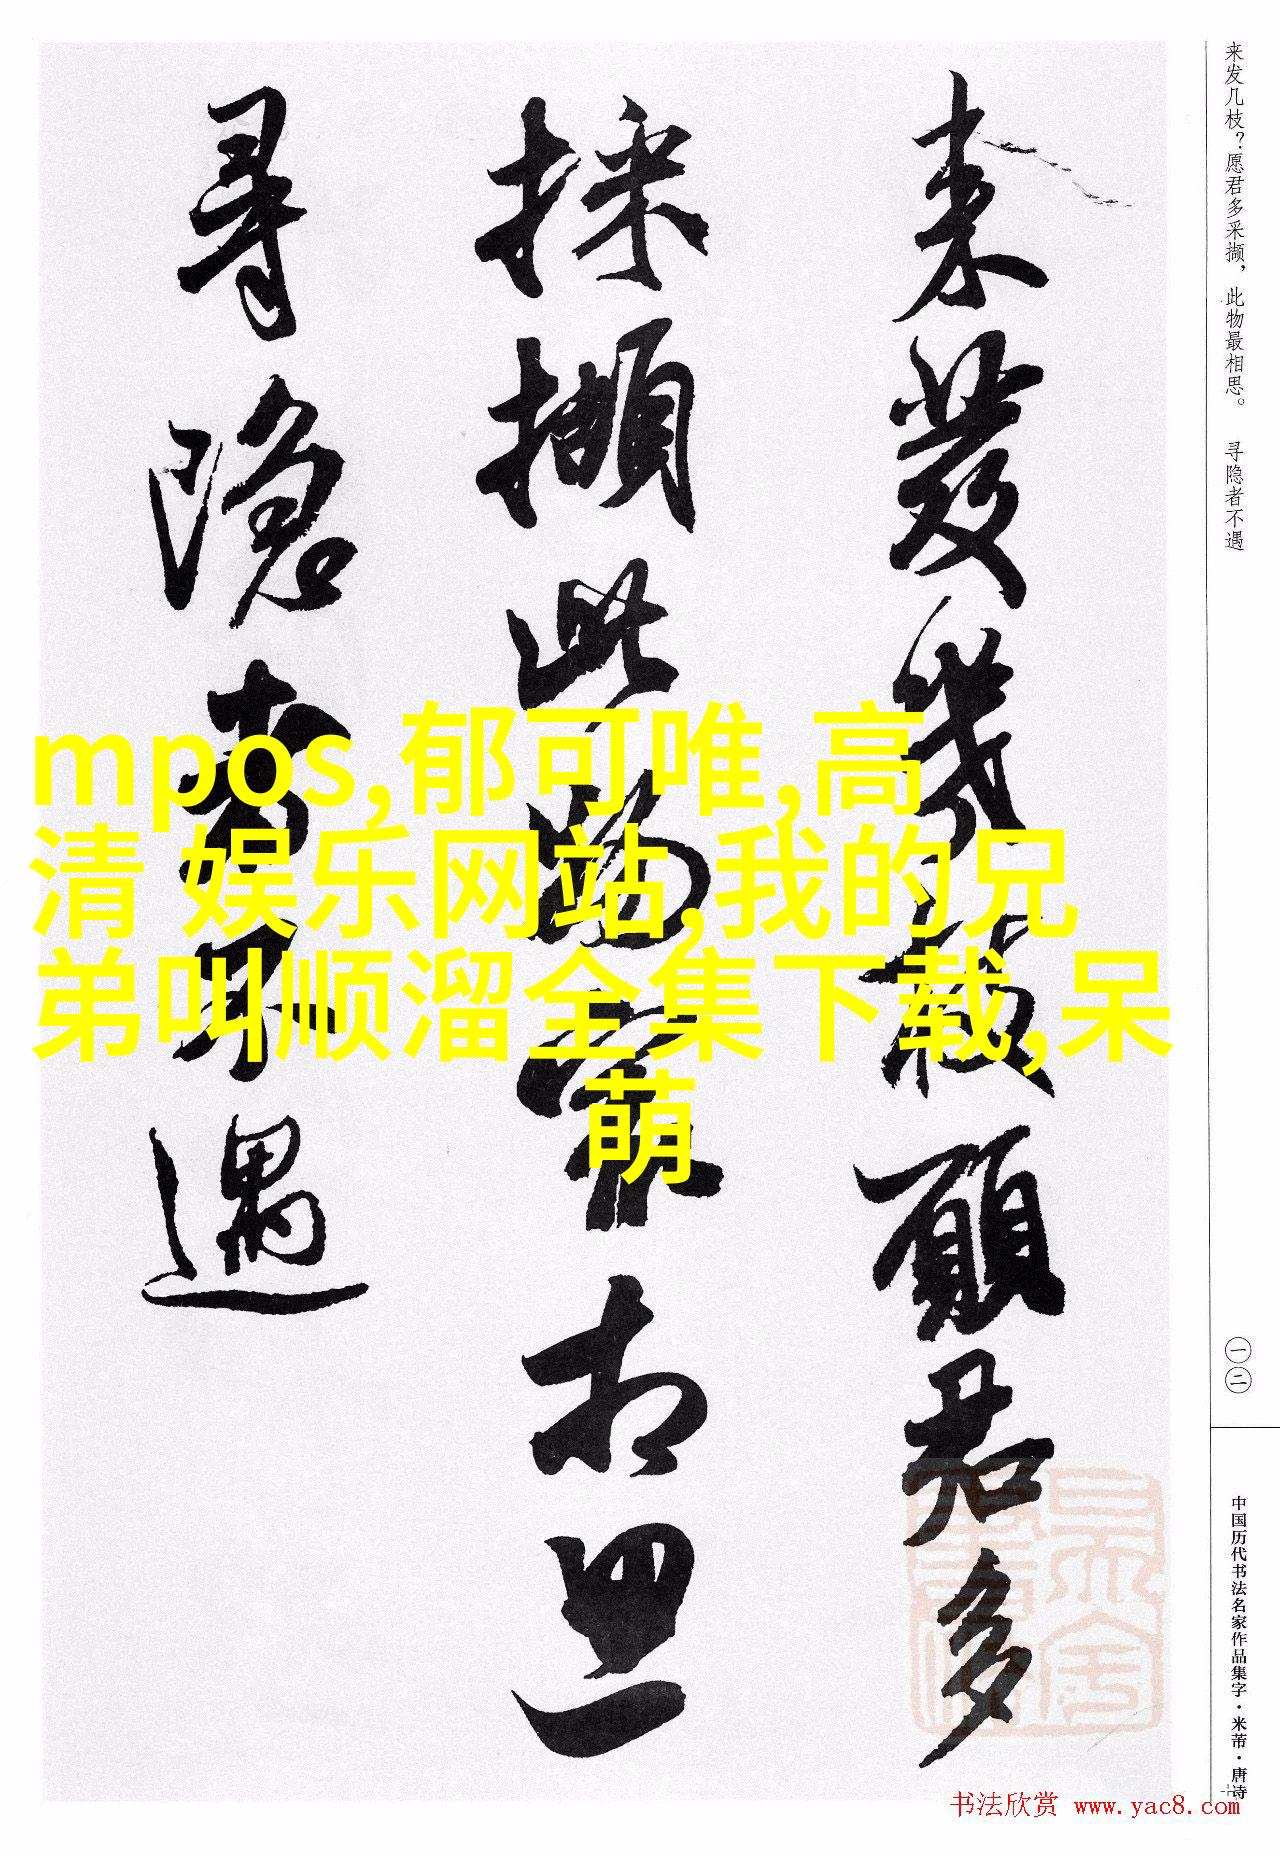 来发几枝？愿君多采撷，此物最相思。 寻隐者不遇
一二
中国历代书法名家作品集字·米芾·唐诗
来發幾枝願君多
採擷此物最相思
尋隱者不遇
mpos,郁可唯,高
清 娱乐网站,我的兄
弟叫顺溜全集下载,呆
萌
书法欣赏 www.yac8.com